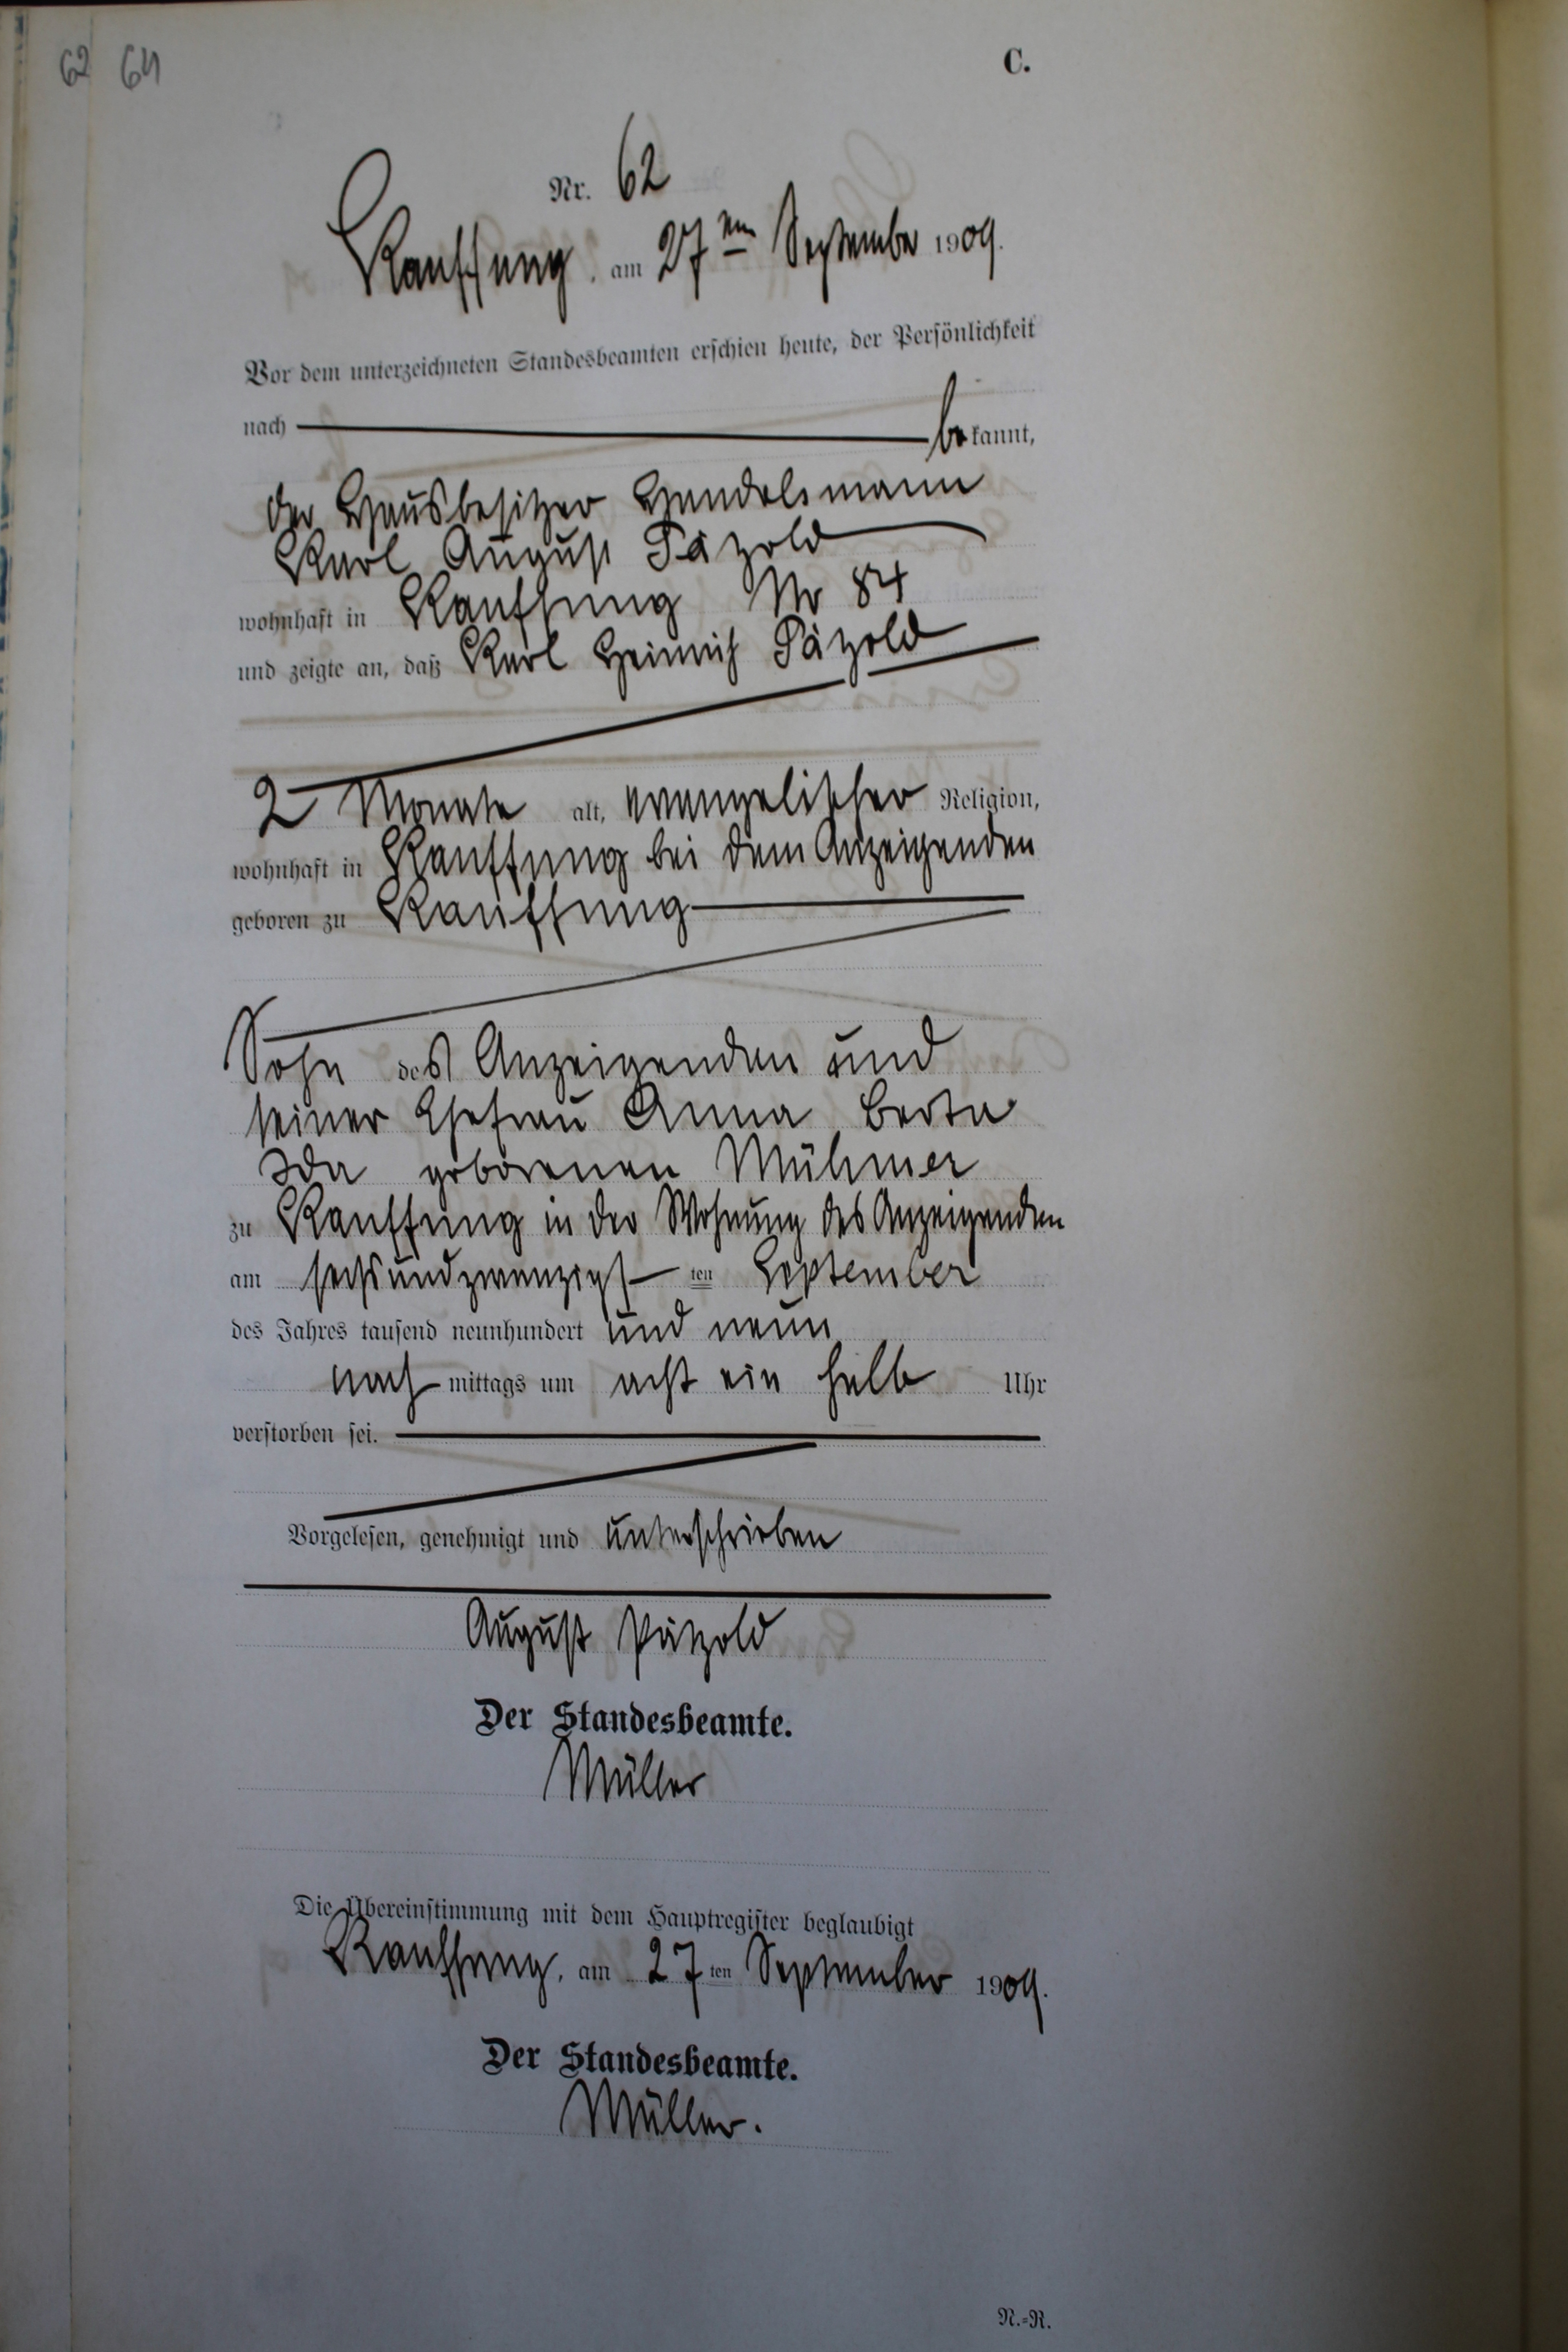 62 64
C.
Nr. 62
Kauffung, am 27ten September 1909.
Vor dem unterzeichneten Standesbeamten erschien heute, der Persönlichkeit
nach bekannt,
der Hausbesitzer Handelsmann
Karl August Päzold
wohnhaft in Kauffung Nr 84
und zeigte an, daß Karl Heinrich Päzold
2 Monate alt, evangelischer Religion,
wohnhaft in Kauffung bei dem Anzeigenden
geboren zu Kauffung
Sohn des Anzeigenden und
seiner Ehefrau Anna Berta
Ida geborenen Mühmer
zu Kauffung in der Wohnung des Anzeigenden
am sechsundzwanzigsten September
des Jahres tausend neunhundert und neun
nachmittags um acht ein halb Uhr
verstorben sei.
Vorgelesen, genehmigt und unterschrieben
August Pätzold
Der Standesbeamte.
Müller
Die Übereinstimmung mit dem Hauptregister beglaubigt
Kauffung, am 27ten September 1909.
Der Standesbeamte.
Müller.
N.=R.